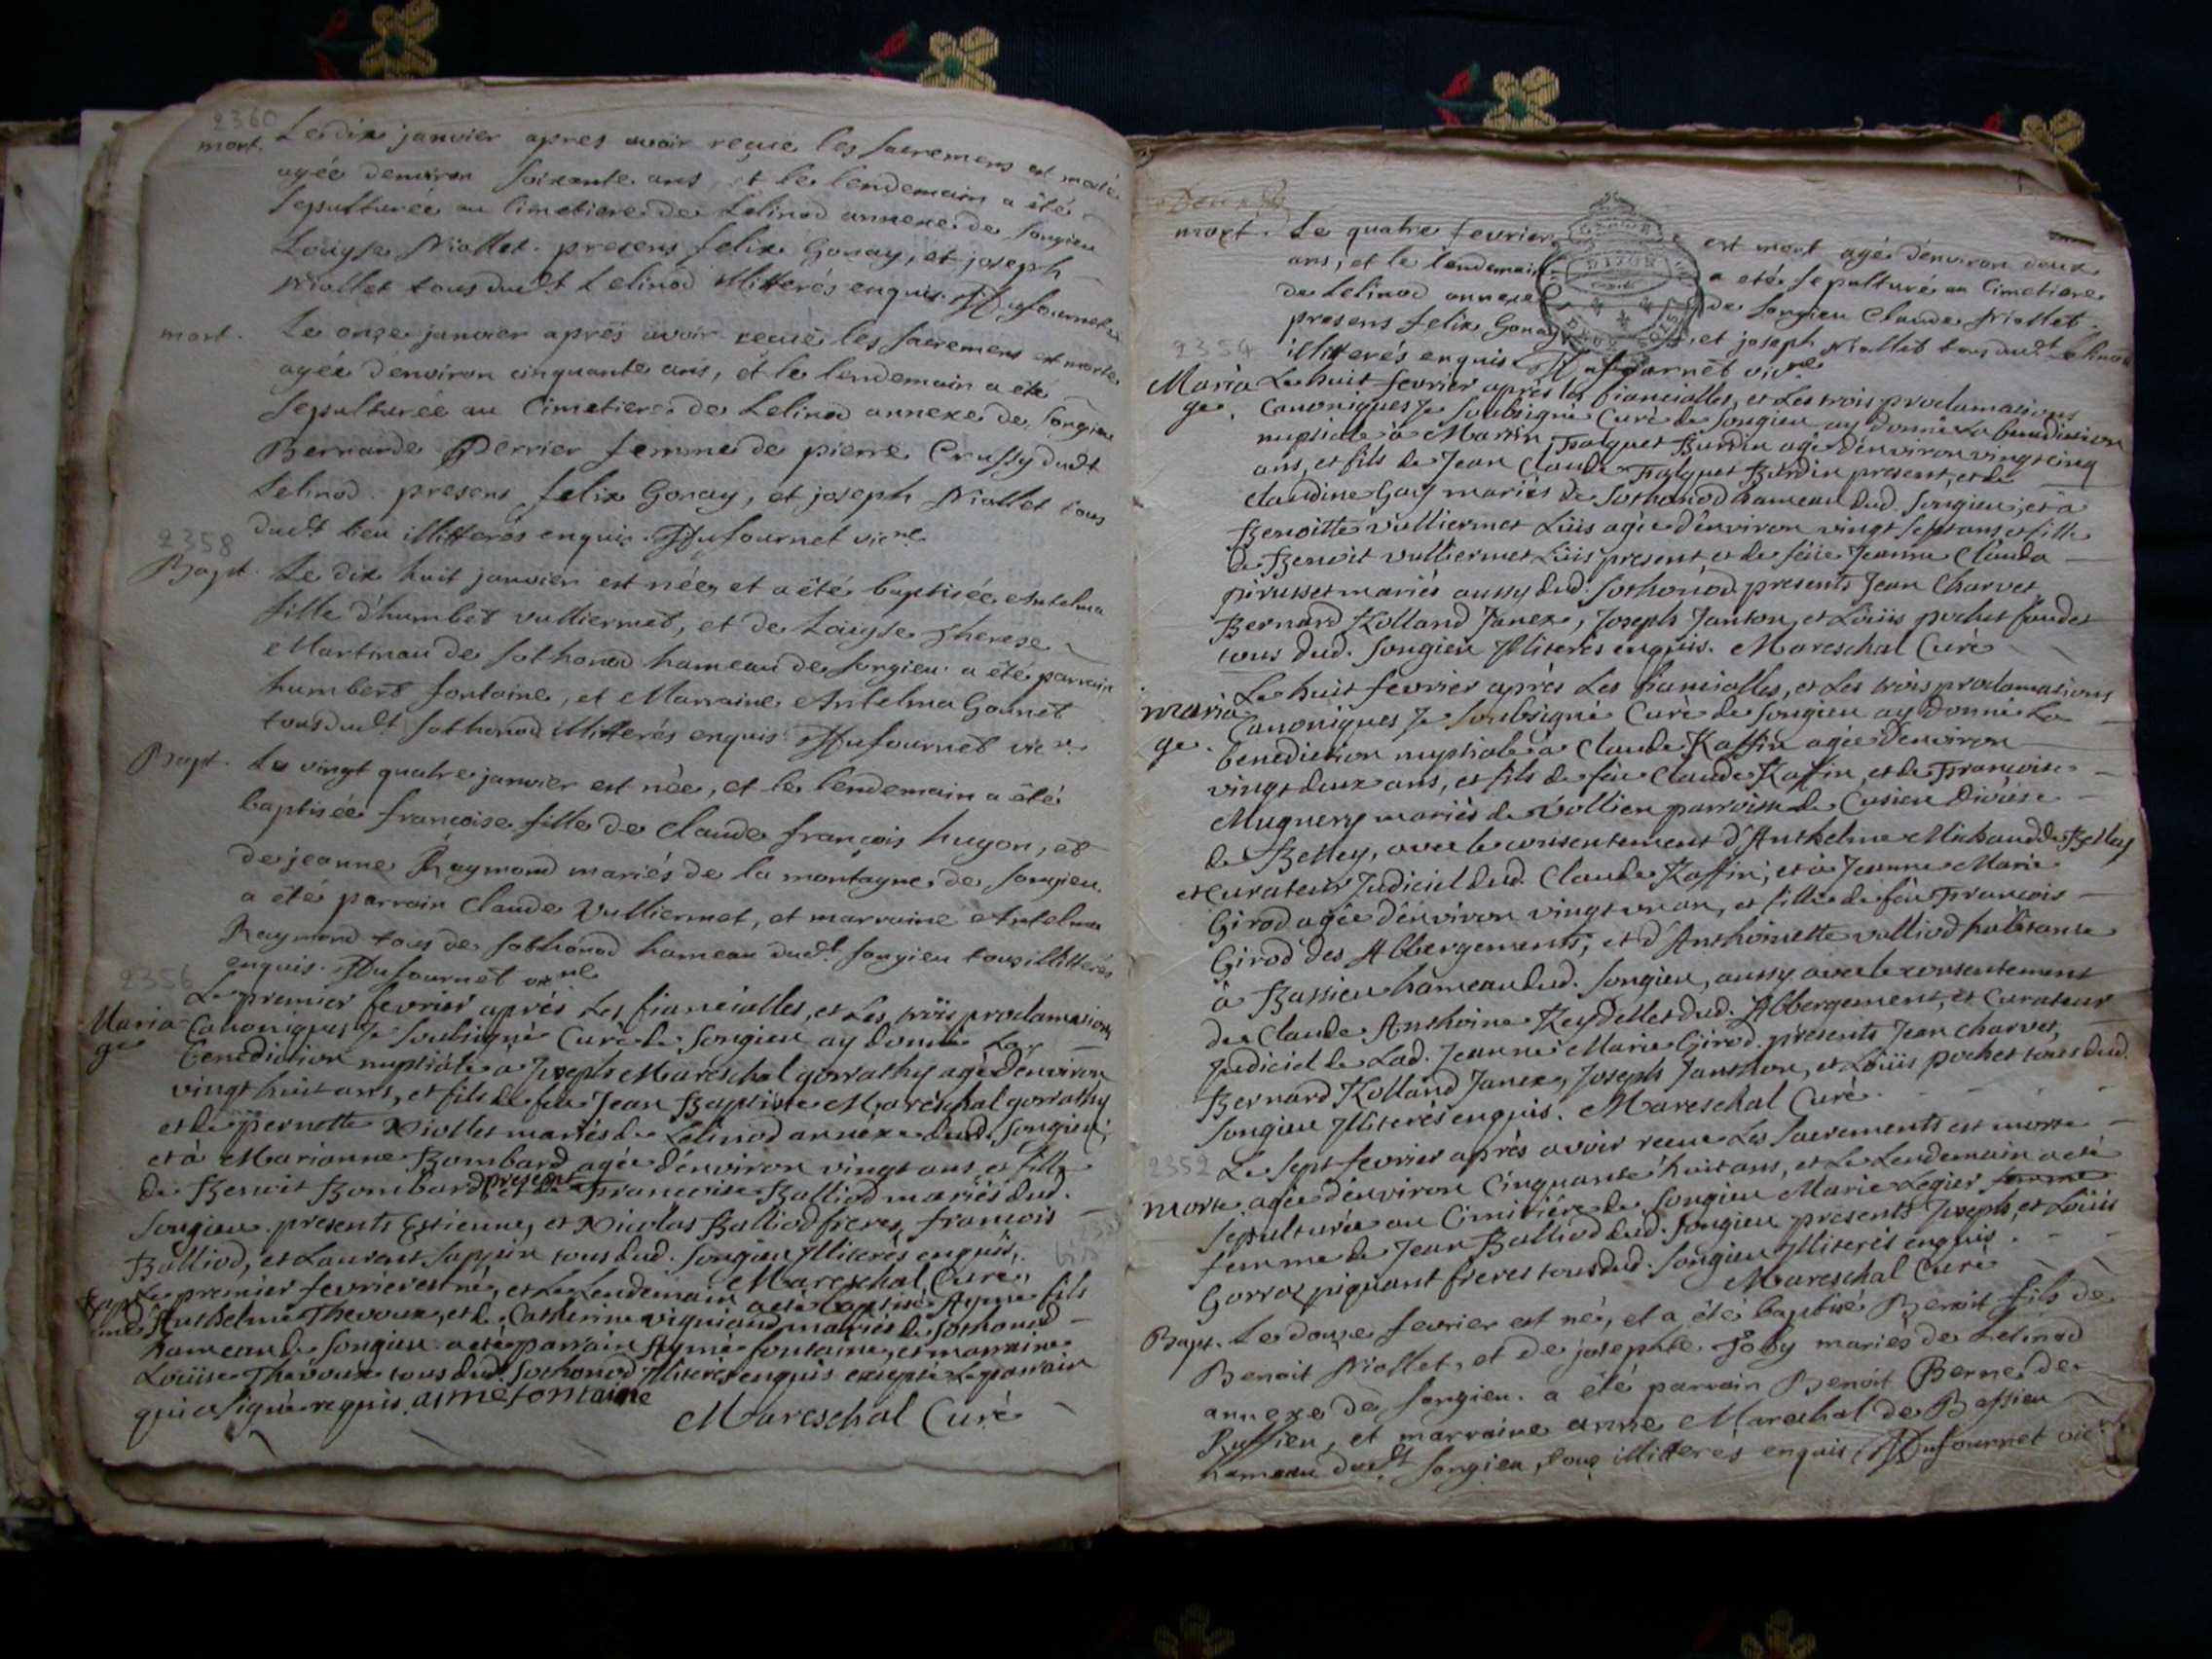 2360
mort. Le dix janvier apres avoir reçue les sacremens est morte
agée denviron soixante ans, et le lendemain a été
sepulturée au Cimetiere de Lelinod annexe de Songieu
Louyse Niollet. presens felix Gonay, et joseph
Niollet tous dudt Lelinod illitterés enquis. Dufournet
mort. Le onze janvier aprés avoir reçuë les sacremens est morte
agée d'environ cinquante ans, et le lendemain a été
sepulturée au Cimetiere de Lelinod annexe de Songieu
Bernarde Perrier femme de pierre Crussy dudt
Lelinod. presens felix Gonay, et joseph Niollet tous
dudt lieu illitterés enquis. Dufournet vicre
2358
Bapt. Le dix huit janvier est née, et a été baptisée Antelma
fille d'humbet vulliermet, et de Loüyse Therese
Martinau de Sothonod hameau de Songieu. a été parrain
humbert fontaine, et Marraine Antelma Gonnet
tous dudt Sothonod illitterés enquis. Dufournet vicre
Bapt. Le vingt quatre janvier est née, et le lendemain a été
baptisée françoise fille de Claude françois hugon, et
de jeanne Raymond mariés de la montagne de Songieu.
a été parrain Claude Vulliermet, et marraine Antelma
Raymond tous de Sothonod hameau dudt Songieu tous illitterés
enquis. Dufournet vicre
2356
Le premier fevrier aprés Les fiancialles, et Les trois proclamations
Maria- Canoniques Je Soubsigné Curé de Songieu ay donné La
ge benediction nuptiale à Joseph Mareschal gorrathy agé d'environ
vingt huit ans, et fils de feu Jean Baptiste Mareschal gorrathy
et de pernette Niollet mariés de Lelinod annexe dud. Songieu;
et à Marianne Bombard agée d'environ vingt ans, et fille
de Benoit Bombard present et de françoise Balliod mariés dud.
Songieu. presents Estienne, et Nicolas Balliod freres, francois
Balliod, et Laurent Sappin tous dud. Songieu Illiterés enquis.
Mareschal Curé
Le premier fevrier est né, et Le Lendemain a été baptisé Aymé fils
d'Anthelme Thevoux, et de Catherine vigniand mariés de Sothonod
hameau de Songieu a été parrain Aymé fontaine, et marraine
Loüise Thevoux tous dud. Sothonod Illiterés enquis excepté Le parrain
qui a signé requis. aime fontaine
Mareschal Curé
mort. Le quatre fevrier est mort agé d'environ deux
ans, et le lendemain a eté sepulturé au Cimetiere
de Lelinod annexe de Songieu Claude Niollet.
presens felix Gonay, et joseph Niollet tous dudt Lelinod
illitterés enquis Dufournet vicre
2354
Maria Le huit fevrier aprés les fiancialles, et Les trois proclamations
ge. Canoniques Je Soubsigné Curé de Songieu ay donné La benediction
nuptiale à Martin Falquet Burdin agé d'environ vingt cinq
ans, et fils de Jean Claude Falquet Burdin present, et de
claudine Gay mariés de Sothonod hameau dud. Songieu; et à
Benoitte vulliermet Luis agée d'environ vingt sept ans, et fille
de Benoit vulliermet Luis present, et de feüe Jeanne Clauda
mariés aussy dud. Sothonod. presents Jean Charvet
Bernard Rolland Janex, Joseph Janton, et Loüis pochet
tous dud. Songieu Illiterés enquis. Mareschal Curé
Le huit fevrier aprés Les fiancialles, et Les trois proclamations
maria Canoniques Je Soubsigné Curé de Songieu ay donné La
ge. benediction nuptiale à Claude Raffin agée d'environ
vingt deux ans, et fils de feu Claude Raffin, et de Françoise
Mugnery mariés de vollien parroisse de Cusieu Dioüese
de Belley, avec le consentement d'Anthelme Michaud de Belley
et curateur Judiciel dud. Claude Raffin; et à Jeanne Marie
Girod agée d'environ vingt un an, et fille de feu François
Girod des Abbergements, et d'Anthoinette valliod habitante
à Bassieu hameau dud. Songieu, aussy avec le consentement
de Claude Anthoine Reydellet dud. Abbergement, et Curateur
Judiciel de Lad. Jeanne Marie Girod. presents Jean charvet,
Bernard Rolland Janex, Joseph Janthon, et Loüis pochet tous dud.
Songieu Illiterés enquis. Mareschal Curé.
2352
Le sept fevrier aprés avoir receue Les sacrements est morte
morte. agée d'environ Cinquante huit ans, et Le Lendemain a eté
sepulturée au Cimitiére de Songieu Marie Legier femme
femme de Jean Balliod dud. Songieu presents Joseph, et Loüis
Gorraz piquant freres tous dud. Songieu Illiterés enquis.
Mareschal Curé
Bapt. Le douze fevrier est né, et a été baptisé Benoit fils de
Benoit Niollet, et de josephte Joly mariés de Lelinod
annexe de Songieu. a été parrain Benoit Berne de
Ruffieu, et marraine anne Mareschal de Bassieu
hameau dudt Songieu, tous illitterés enquis. Dufournet vicre